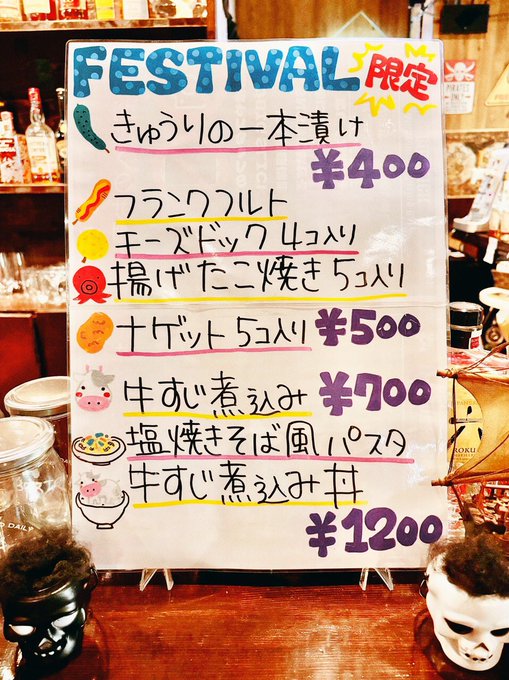 FESTIVAL 限定
きゅうりの一本漬け
¥400
フランクフルト
チーズドック 4コ入り
揚げたこ焼き 5コ入り
ナゲット 5コ入り ¥500
牛すじ煮込み ¥700
塩焼きそば風パスタ
牛すじ煮込み丼
¥1200
PIRATES
ONLY
ROKU
DAILY